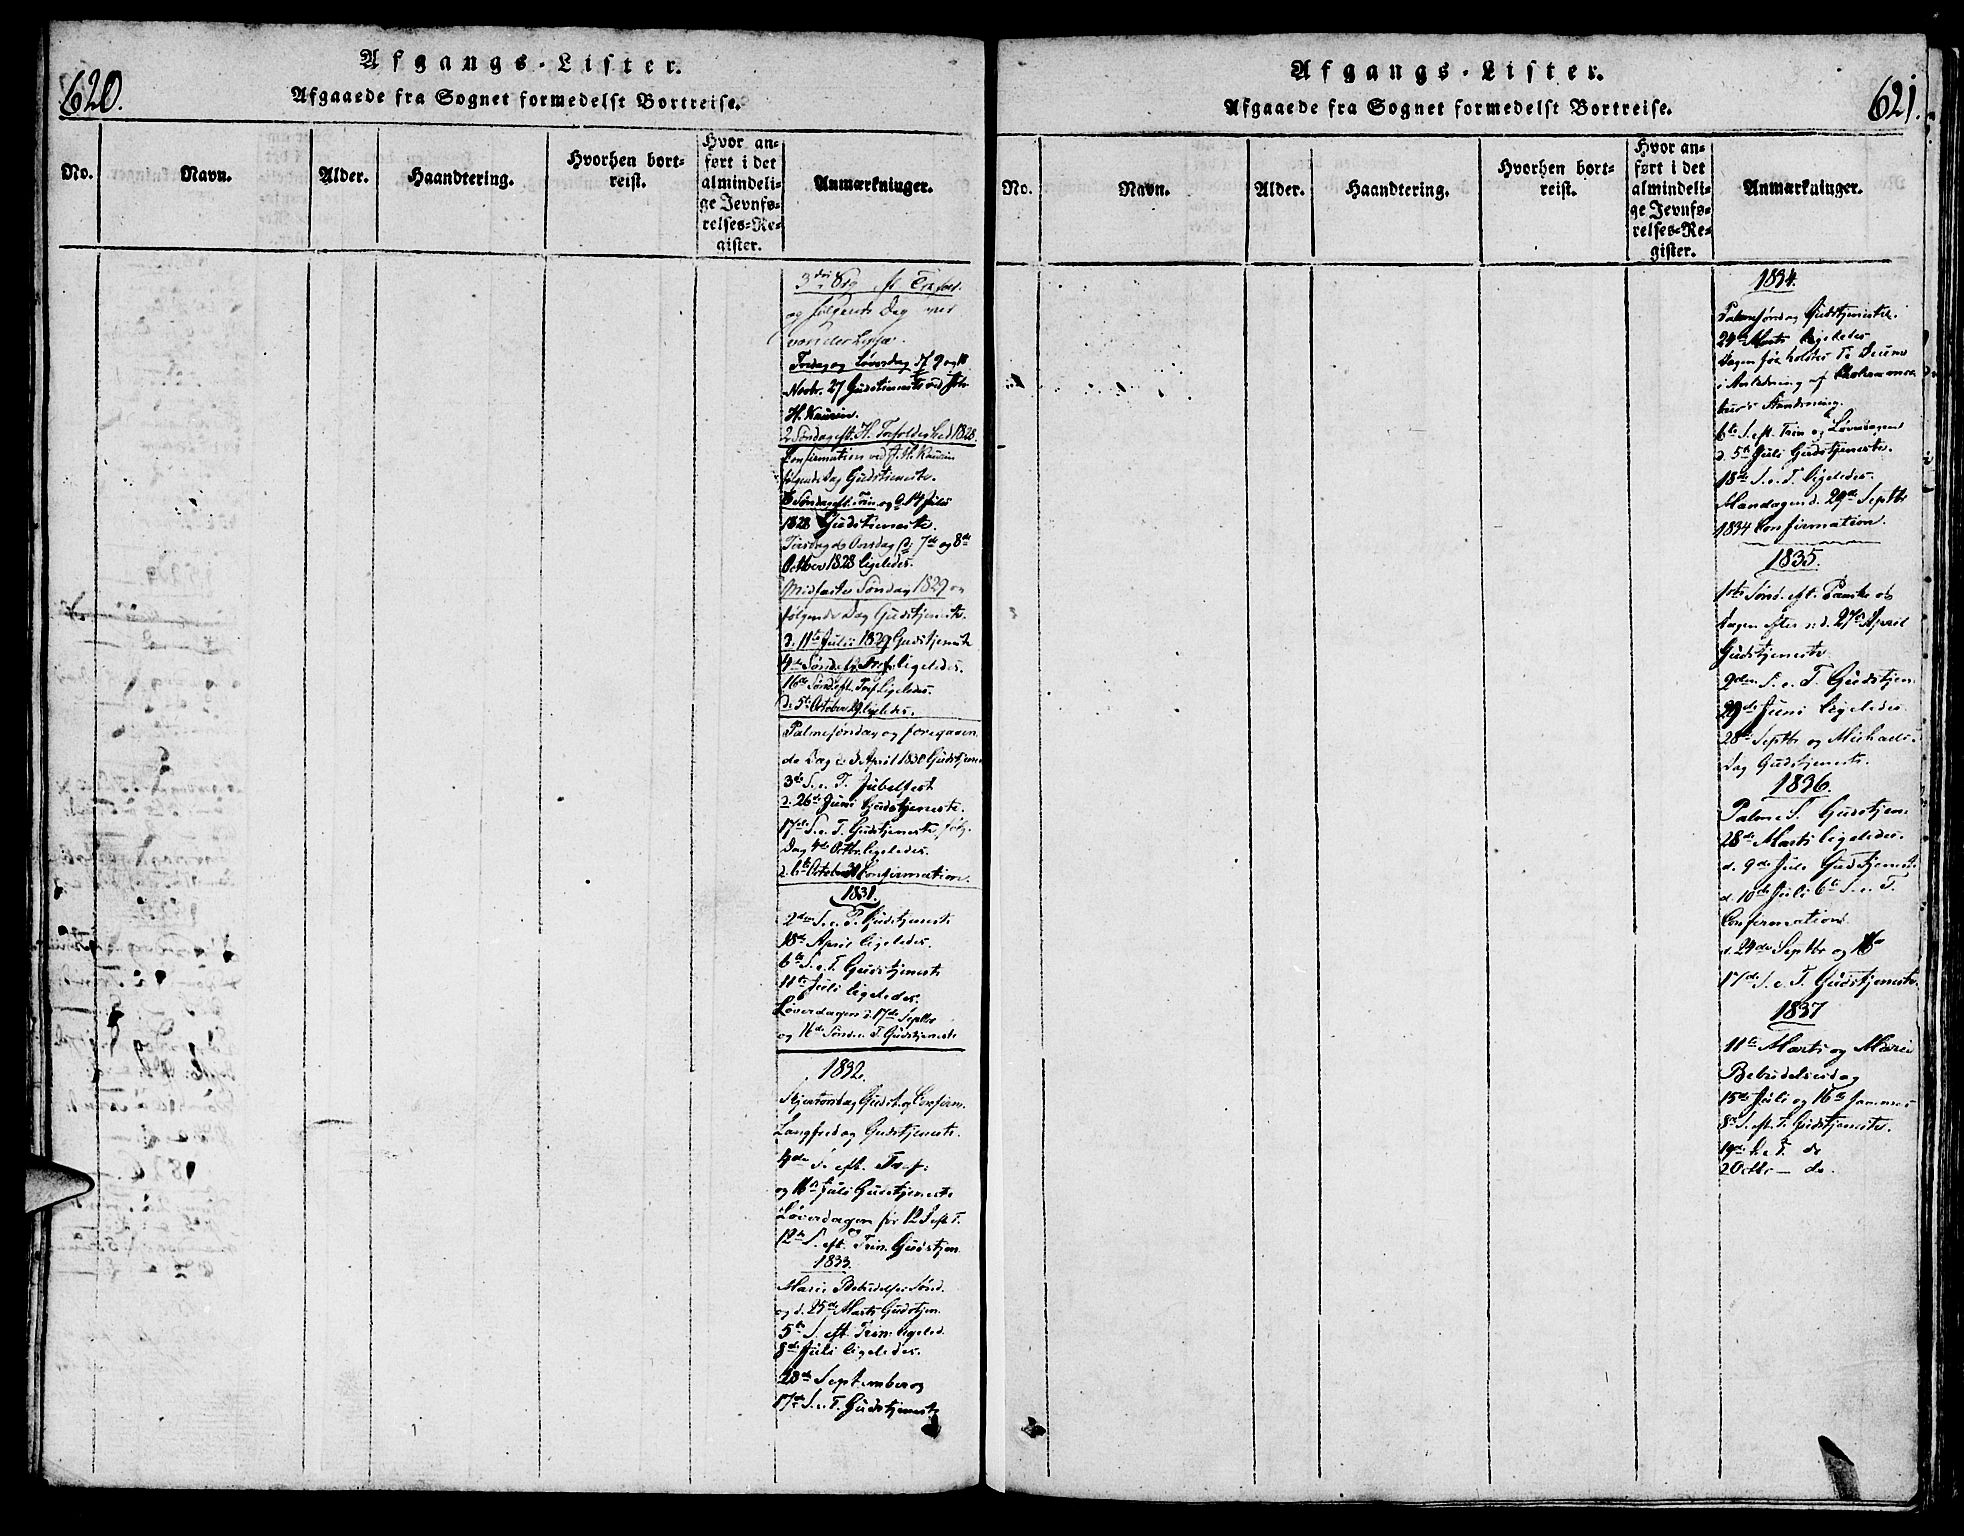 620.
Afgangs-Lister.
Afgaaede fra Sognet formedelst Bortreise.
No.
Navn.
Alder.
Haandtering.
Hvorhen bort-
reist.
Hvor an-
ført i det
almindeli-
ge Jevnfø-
relses-Re-
gister.
Anmærkninger.
og følgende Dag
Torsdag og Løverdag d. 9 og 10
Novbr. 27 Gudstieneste ved
H. Kaurin.
2 Søndag eft. H. 1828
Confirmation ved H. Kaurin
følgende Dag Gudstieneste.
Søndag eft. Trin og d. 14 Juli
1828 Gudstieneste.
Tirsdag og Onsdag d. 7de og 8de
October 1828 ligeledes.
Midfaste Søndag 1829 og
følgende Dag Gudstjeneste.
d. 11te Julii 1829 Gudstjeneste
4de Sønd. eft. Tref. ligeledes.
16de Sønd. eft. Tref. ligeledes.
d. 5te October 29 ligeledes.
Palmesøndag og foregaaen-
de Dag d. 3 April 1830 Gudstjene
3de S. e. T. Jubelfest
d. 26de Juni Gudstjeneste.
17de S. e. T. Gudstjeneste, følg.
Dag 4de Octbr. ligeledes.
d. 6te October Confirmation.
1831.
2den S. e. P. Gudstjeneste
18de April ligeledes.
6te S. e. T. Gudstjeneste
11te Juli ligeledes.
Løverdagen d. 17de Septbr
og 16de Sønd. e. T. Gudstjeneste
1832.
Skjertorsdag Gudst. og Confirm.
Langfredag Gudstjeneste.
4de S. eft. Tref.
og 16de Juli Gudstjeneste
Løverdagen før 12 S. eft. T.
og
12te S. eft. Trin. Gudstjen.
1833.
Mariæ Bebudelses Sønd.
og d. 25de Marts Gudstjen.
5te S. eft. Trin. ligeled.
8de Juli ligeledes.
28de September og
17de S. e. T. Gudstjeneste
Afgangs-Lister.
621.
Afgaaede fra Sognet formedelst Bortreise.
No.
Navn.
Alder.
Haandtering.
Hvorhen bort-
reist.
Hvor an-
ført i det
almindeli-
ge Jevnfø-
relses-Re-
gister.
Anmærkninger.
1834.
Palmesøndag Gudstjeneste.
24de Marts ligeledes
Dagen før holdes Te Deum
i Anledning af Choleraens
Standsning.
6te S. eft. Trin og Løverdagen
d. 5te Juli Gudstjeneste.
18de S. e. T. ligeledes.
Mandagen d. 29de Septbr
1834 Confirmation.
1835.
1ste Sønd. eft. Paaske og
Dagen efter d. 27de April
Gudstjeneste.
2den S. e. T. Gudstjen.
29de Juni ligeledes.
28de Septbr og Michaels-
dag Gudstjeneste.
1836.
Palme S. Gudstjen.
28de Marts ligeledes.
d. 9de Juli Gudstjenest.
d. 10de Juli 6te S. e. T.
Confirmation.
d. 24de Septbr og
17de S. e. T. Gudstjeneste.
1837
11te Marts og Mariæ
Bebudelsesdag
15de Juli og 16de sammes
8de S. eft. T. Gudstjeneste.
19de S. e. T. do
2 Octbr — do.